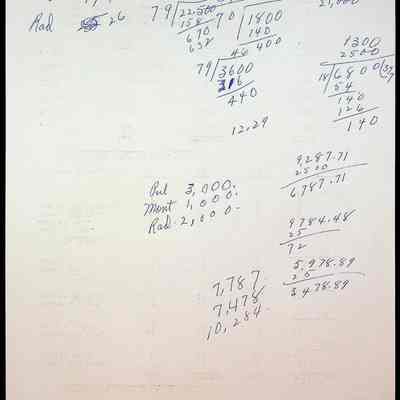 Rad 26
79 22,300
158
670
632
70 1800
140
400
21,000
40
79 3600
316
440
1300
2500
18 6800 (37
54
140
126
140
12.29
9,287.71
2500
6787.71
Pul 3,000.
Mont 1,000.
Rad - 2,000.
9784.48
25
72
5,978.89
25
3478.89
7,787
7,478
10,284.